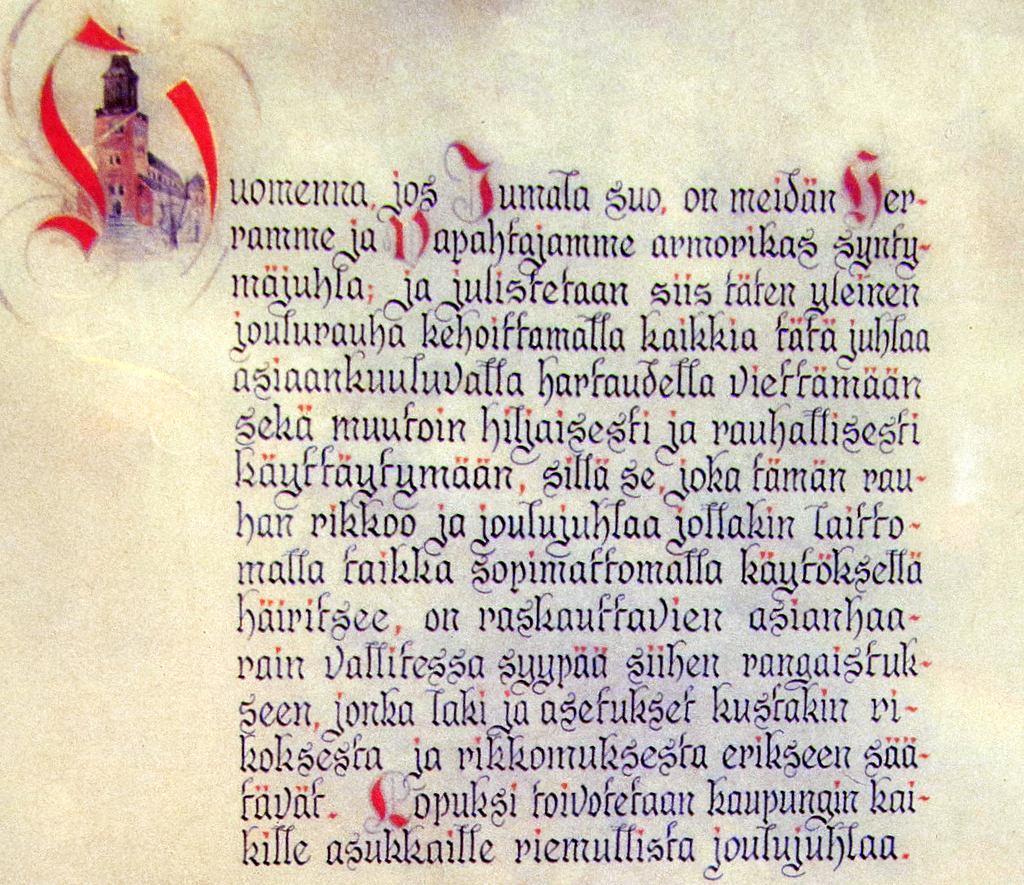 Huomenna, jos Jumala suo, on meidän Her-
ramme ja Vapahtajamme armorikas synty-
mäjuhla; ja julistetaan siis täten yleinen
joulurauha kehoittamalla kaikkia tätä juhlaa
asiaankuuluvalla hartaudella viettämään
sekä muutoin hiljaisesti ja rauhallisesti
käyttäytymään, sillä se, joka tämän rau-
han rikkoo ja joulujuhlaa jollakin laitto-
malla taikka sopimattomalla käytöksellä
häiritsee, on raskauttavien asianhaa-
rain vallitessa syypää siihen rangaistuk-
seen, jonka laki ja asetukset kustakin ri-
koksesta ja rikkomuksesta erikseen sää-
tävät. Lopuksi toivotetaan kaupungin kai-
kille asukkaille riemullista joulujuhlaa.